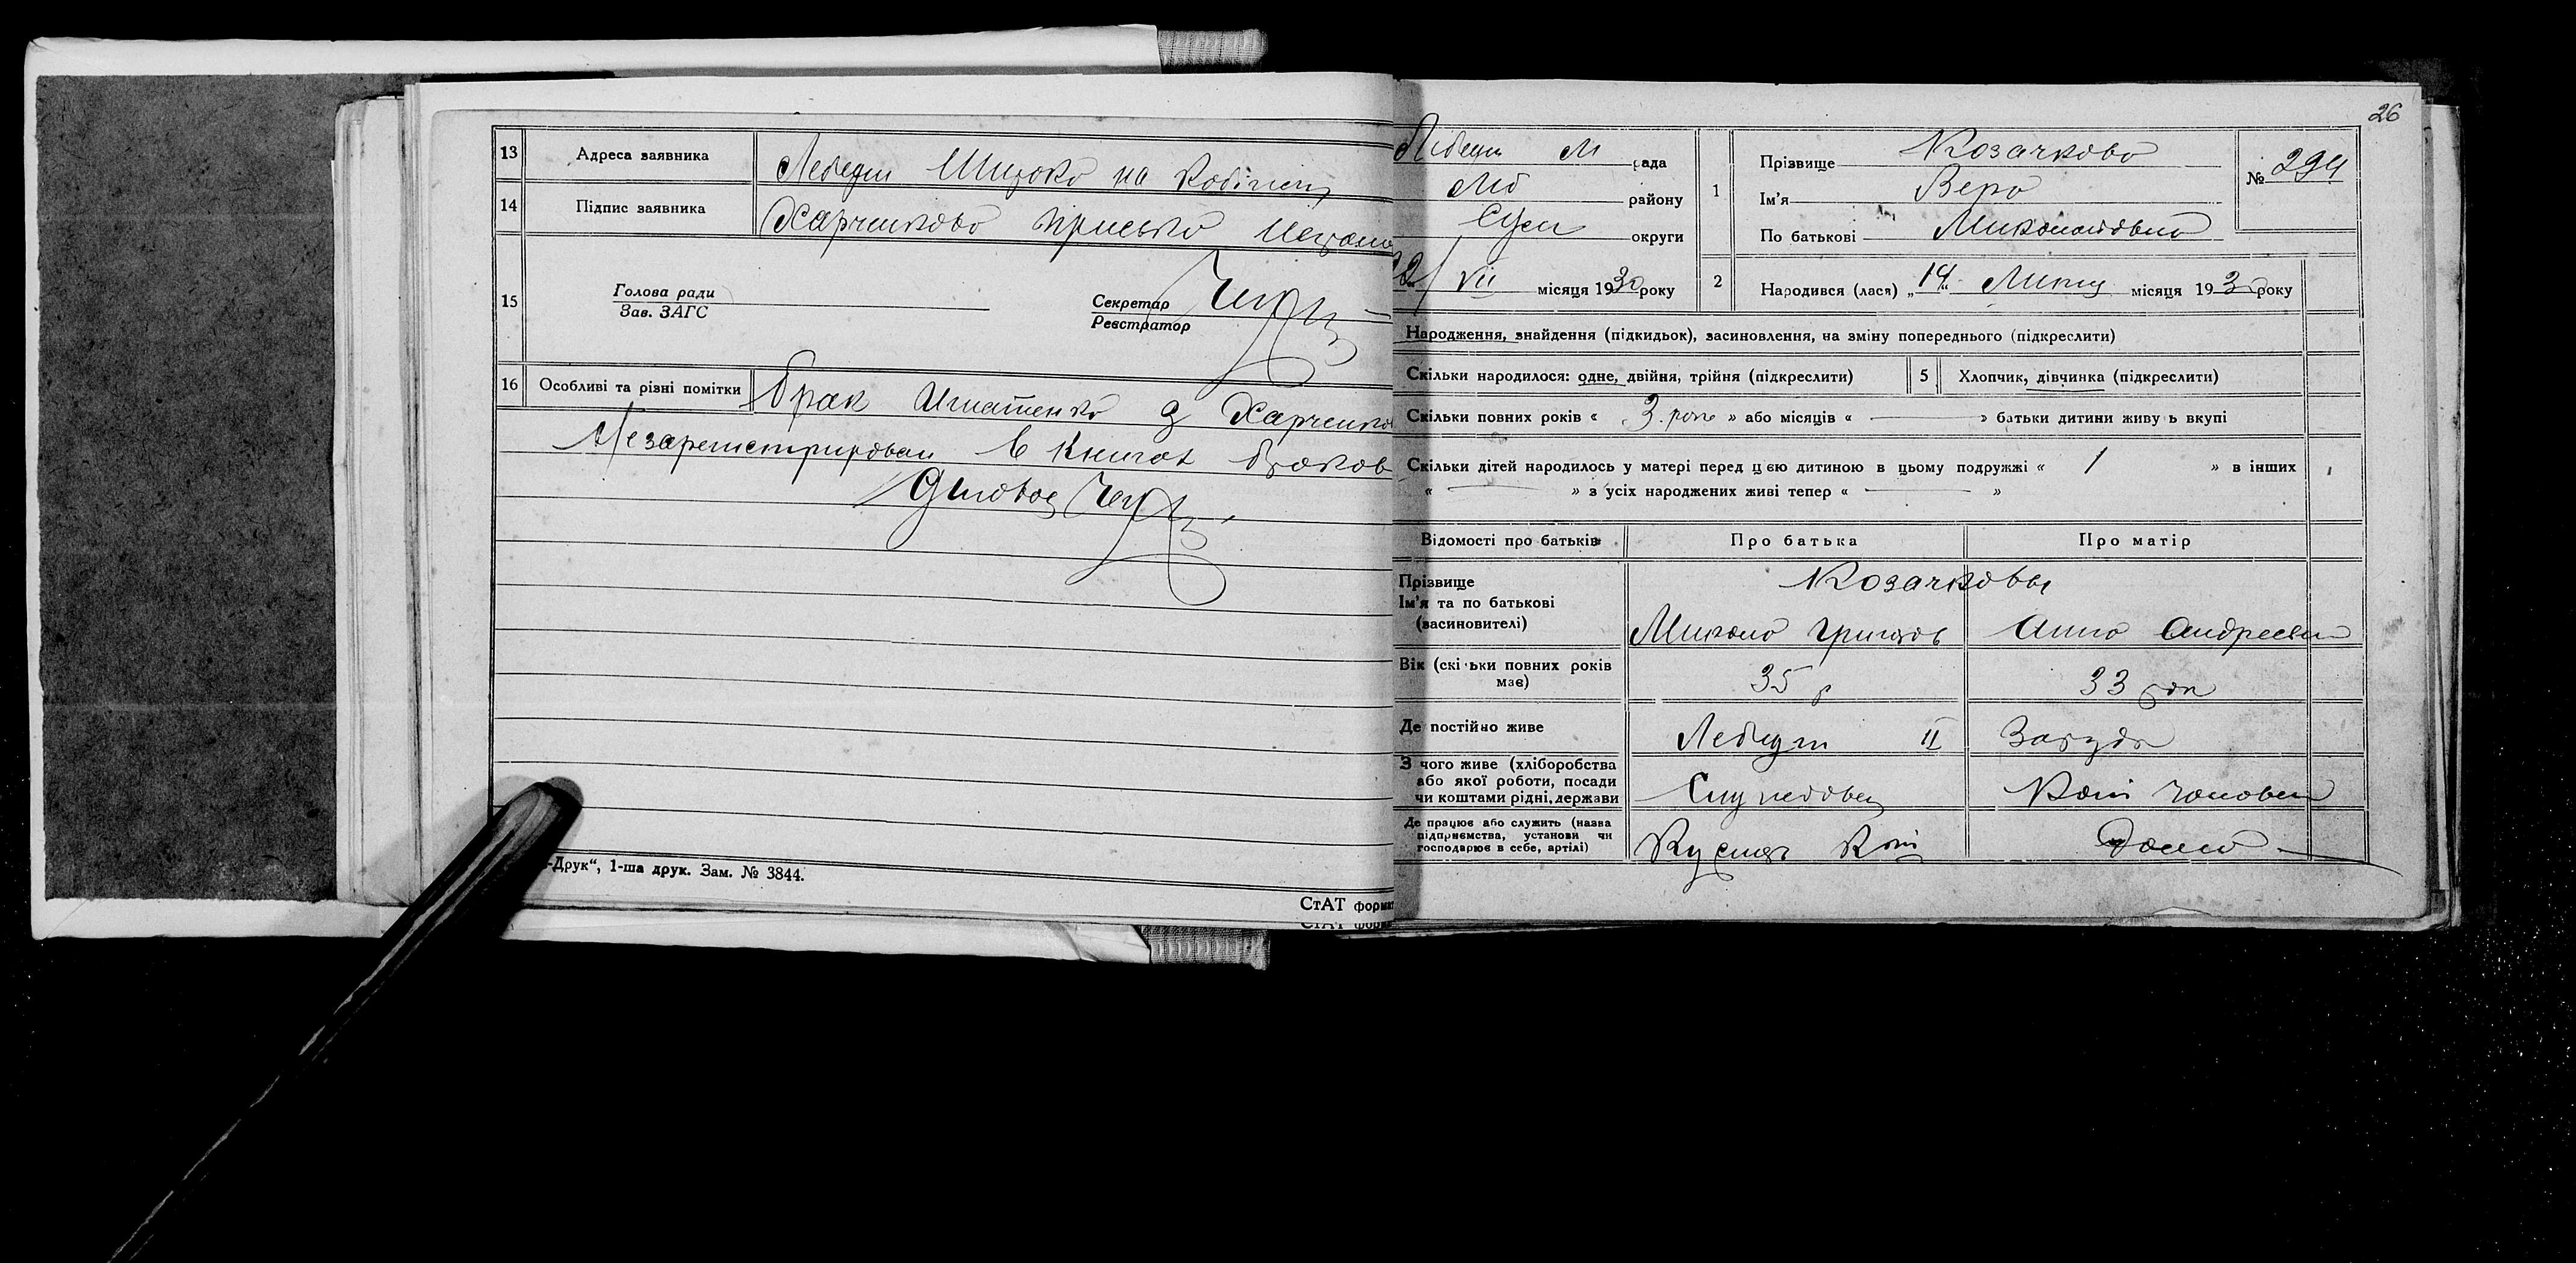 13 Адреса заявника Лебедин Широка на
14 Підпис заявника Харченкова Приська
15 Голова ради
Зав. ЗАГС
Секретар
Реєстратор
16 Особливі та різні помітки Брак Игнатенко з Харченков
Незарегистрирован в книгах браков
-Друк“, 1-ша друк. Зам. № 3844.
СтАТ формат
26
Лебедин М рада
Леб району
Сум округи
22/VII місяця 1930 року
1 Прізвище Козачкова
Ім'я Вера
По батькові Миколаївна
№ 294
2 Народився (лася) „14“ Липця місяця 1930 року
Народження, знайдення (підкидьок), васиновлення, на зміну попереднього (підкреслити)
Скільки народилося: одне, двійня, трійня (підкреслити) 5 Хлопчик, дівчинка (підкреслити)
Скільки повних років « 3 роки » або місяців « — » батьки дитини живу ь вкупі
Скільки дітей народилось у матері перед цією дитиною в цьому подружжі « 1 » в інших
« — » з усіх народжених живі тепер « — »
Відомості про батьків Про батька Про матір
Прізвище Козачковы
Ім'я та по батькові
(васиновителі) Микола Григоров Анна Андреевн
Вік (скі ьки повних років має) 35 р 33 рок
Де постійно живе Лебедин II
З чого живе (хліборобства
або якої роботи, посади
чи коштами рідні, держави Служебовец Кош чоловіка
Де працює або служить (назва
підприємства, установи чи
господарює в себе, артілі) Дома